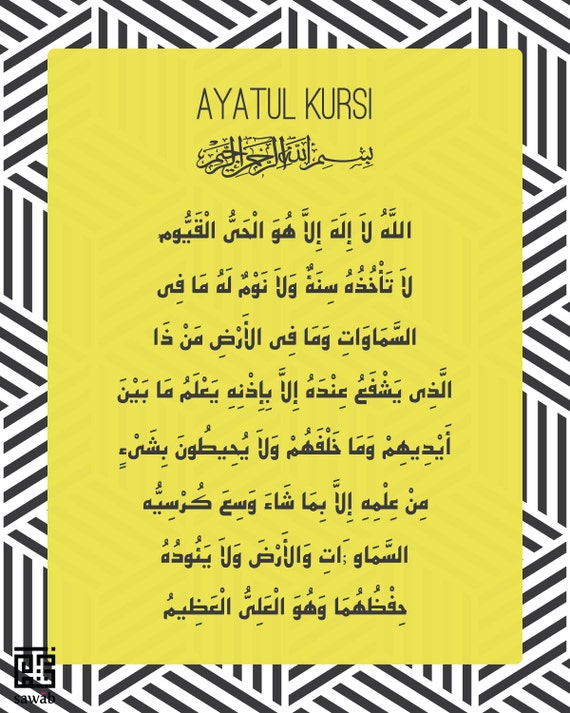 AYATUL KURSI
بِسْمِ اللَّهِ الرَّحْمَٰنِ الرَّحِيمِ
اللَّهُ لَا إِلَهَ إِلَّا هُوَ الْحَىُّ الْقَيُّوم
لَا تَأْخُذُهُ سِنَةٌ وَلَا نَوْمٌ لَهُ مَا فِى
السَّمَاوَاتِ وَمَا فِى الأَرْضِ مَنْ ذَا
الَّذِى يَشْفَعُ عِنْدَهُ إِلَّا بِإِذْنِهِ يَعْلَمُ مَا بَيْنَ
أَيْدِيهِمْ وَمَا خَلْفَهُمْ وَلَا يُحِيطُونَ بِشَىْءٍ
مِنْ عِلْمِهِ إِلَّا بِمَا شَاءَ وَسِعَ كُرْسِيُّه
السَّمَاو ;َاتِ وَالأَرْضَ وَلَا يَئُودُهُ
حِفْظُهُمَا وَهُوَ الْعَلِىُّ الْعَظِيمُ
sawab